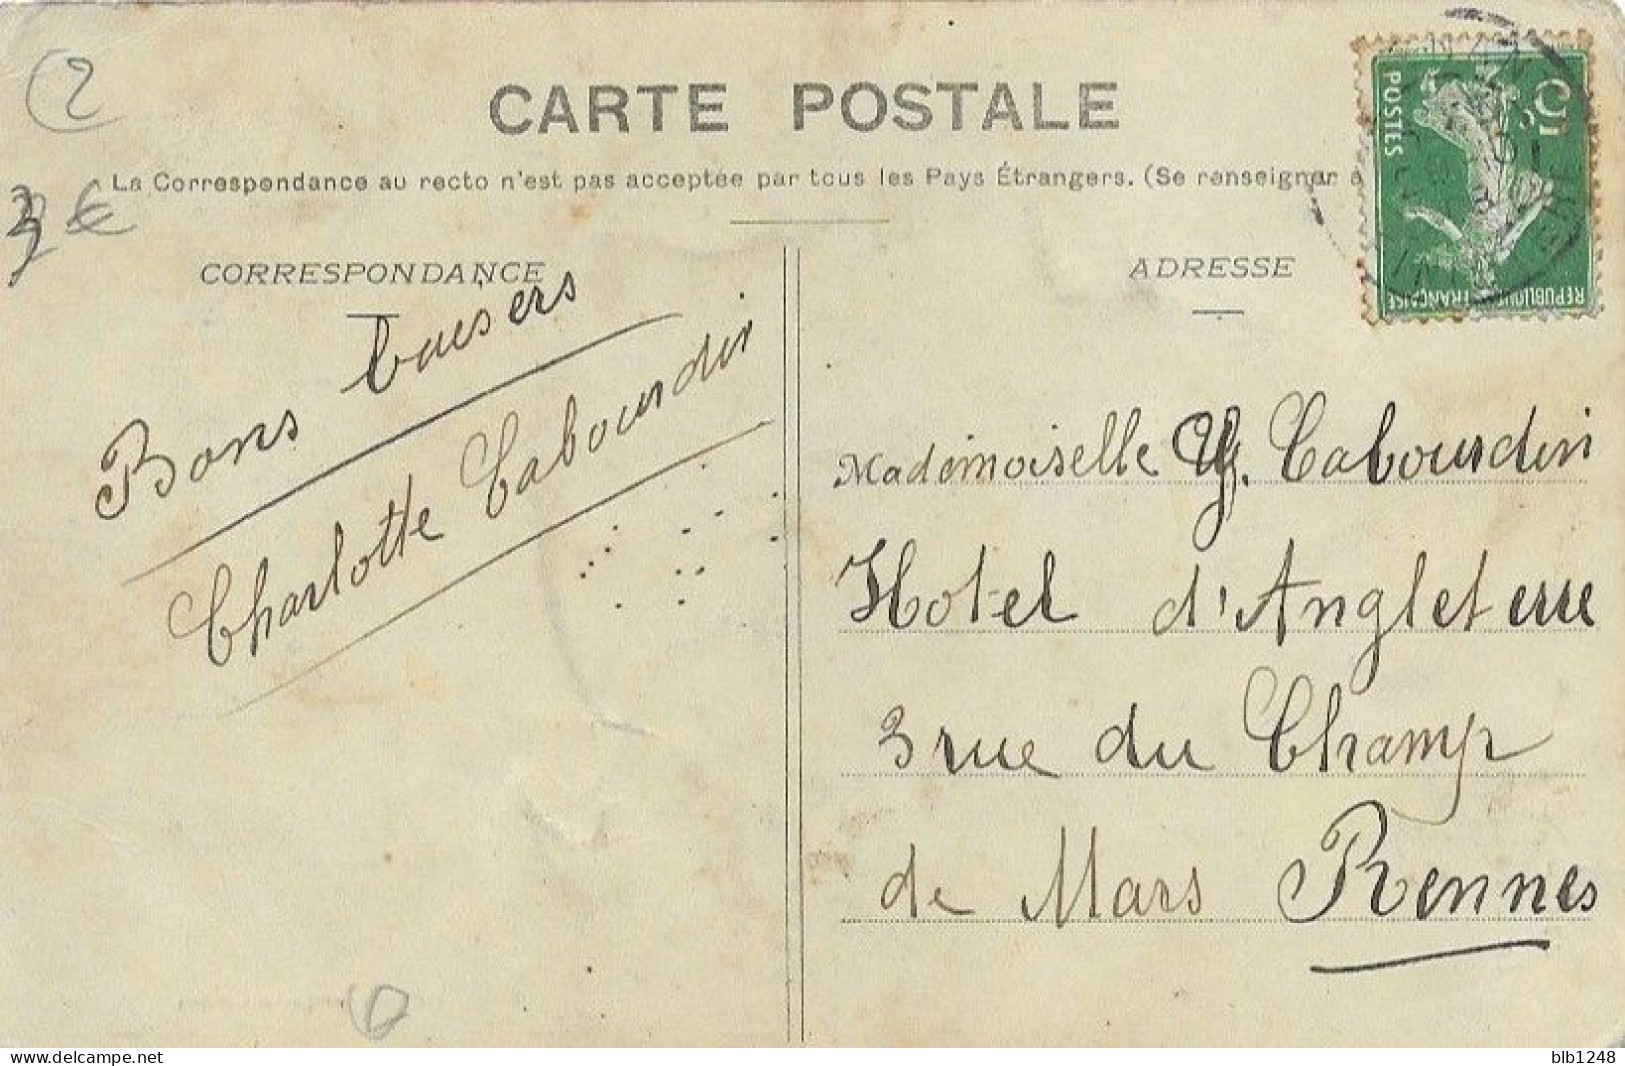 2
CARTE POSTALE
La Correspondance au recto n'est pas acceptée par tous les Pays Étrangers. (Se renseigner à
3 €
CORRESPONDANCE
Bons baisers
Charlotte Cabourdin
ADRESSE
5c
POSTES
REPUBLIQUE FRANÇAISE
Mademoiselle Y. Cabourdin
Hotel d'Angleterre
3 rue du Champ
de Mars Rennes
delcampe.net
blb1248